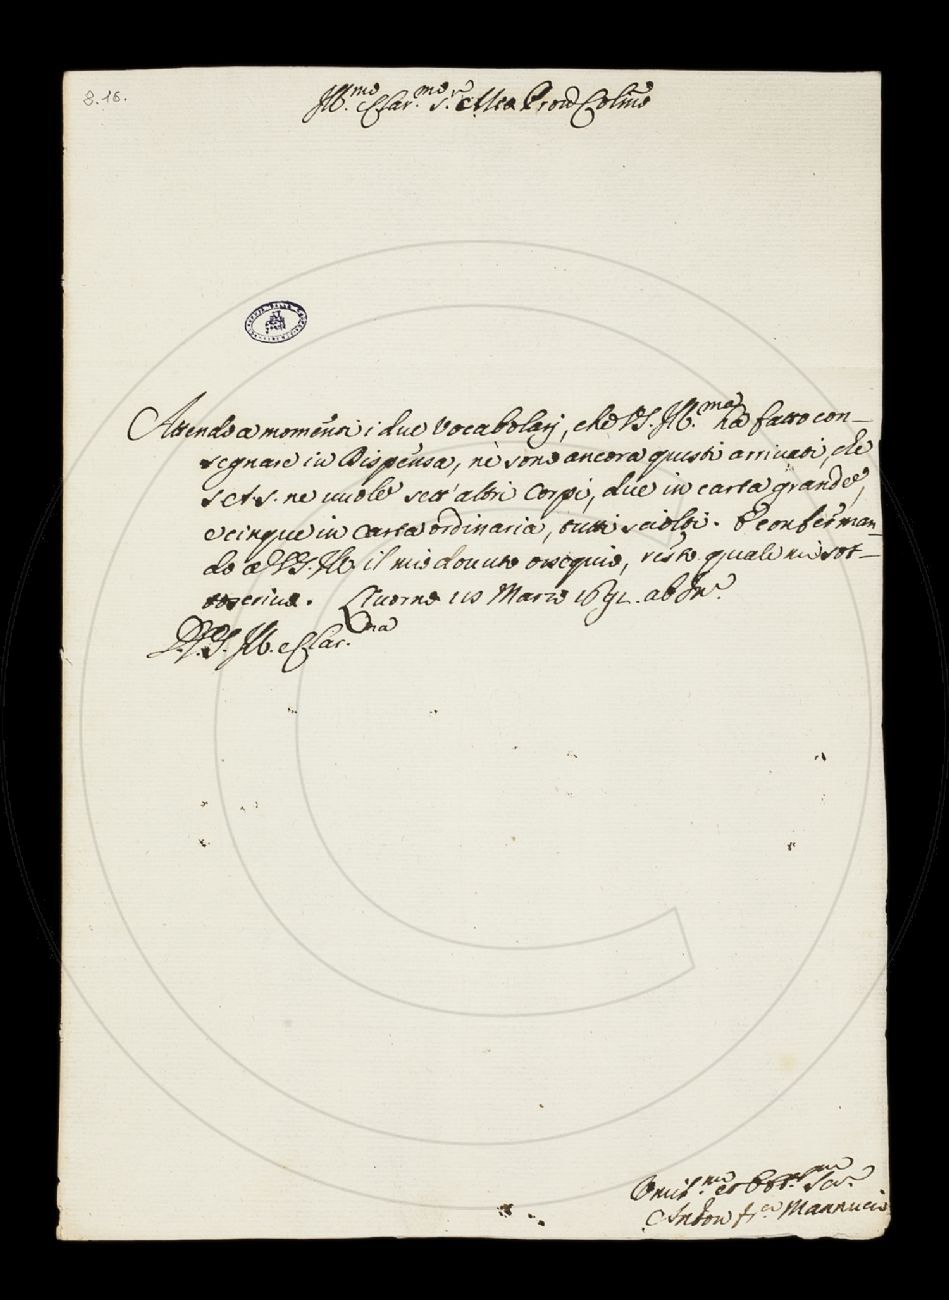 8.16.
Ill.mo e Clar.mo S.r mio Pron Col.mo
Attendo a momenti i due Vocabolarj, che V.S. Ill.ma ha fatto con-
segnare in Dispensa, nè sono ancora questi arrivati, che
S.A.S. ne vuole sett'altri Corpi, due in carta grande,
e cinque in Carta ordinaria, tutti sciolti. E conferman-
do a V.S. Ill. il mio dovuto ossequio, resto quale mi sot-
toscrivo. Livorno 10 Marzo 1691. ab Inc.
D.V.S. Ill. e Clar.ma
Umil.mo et Obb.mo Ser.
Anton Fr.co Mannucci